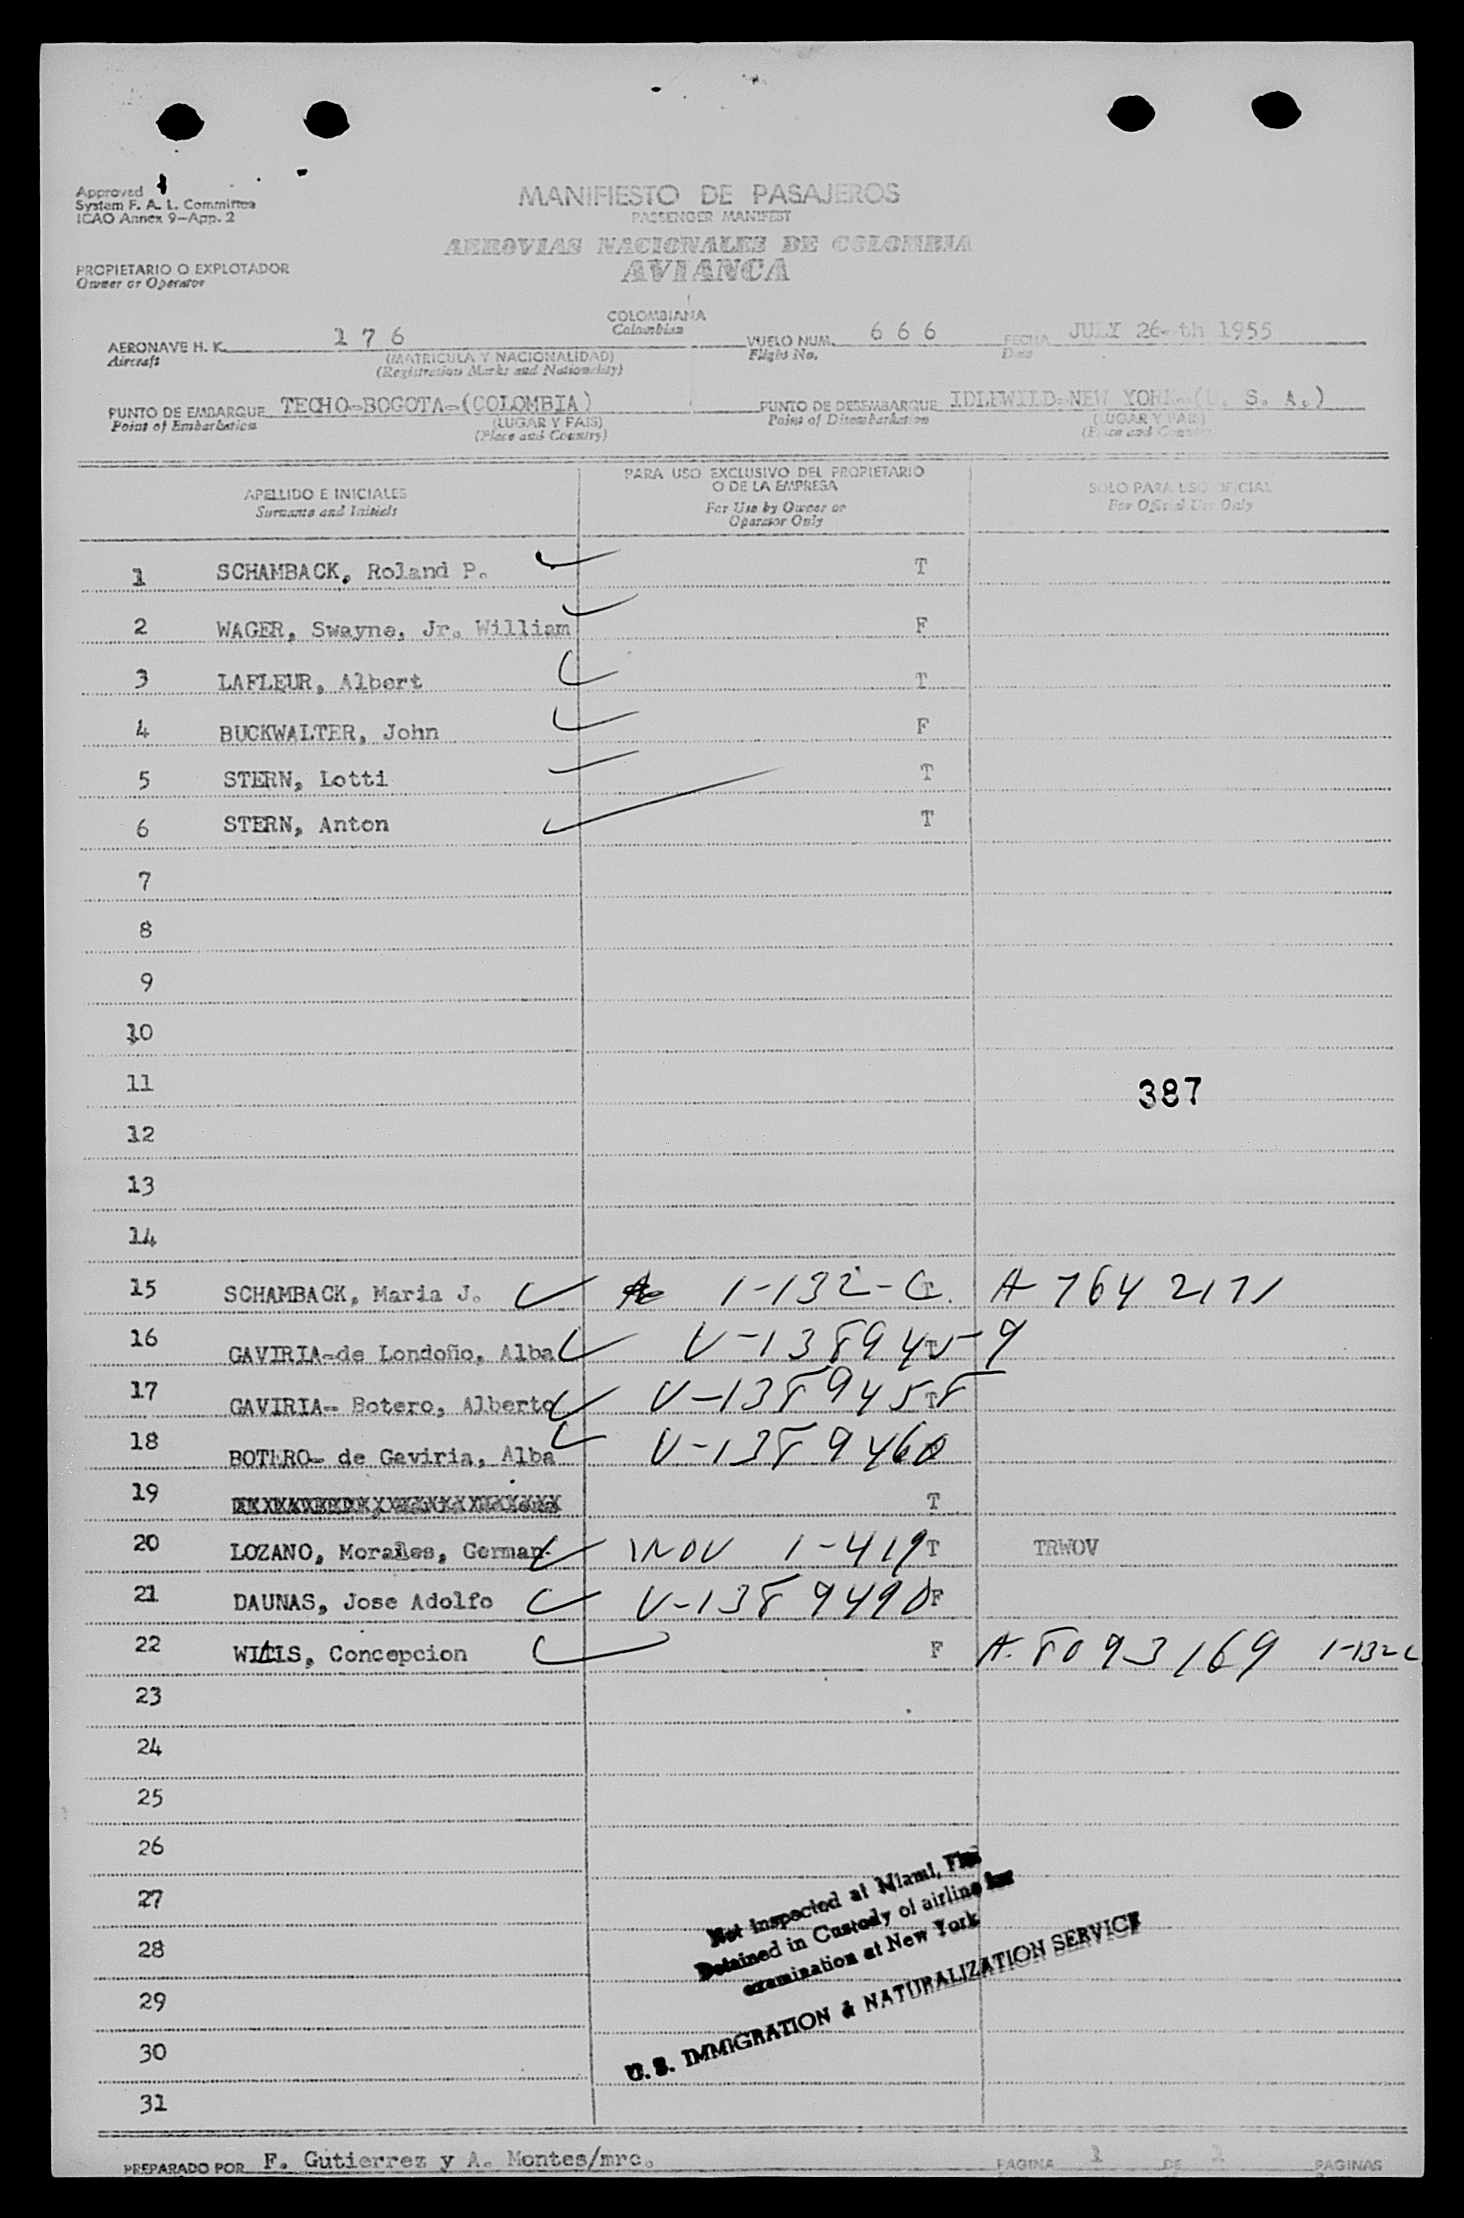 Approved
System F. A. L. Committee
ICAO Annex 9-App. 2
MANIFIESTO DE PASAJEROS
PASSENGER MANIFEST
AEROVIAS NACIONALES DE COLOMBIA
AVIANCA
PROPIETARIO O EXPLOTADOR
Owner or Operator
AERONAVE H. K. 176
Aircraft
(MATRICULA Y NACIONALIDAD)
(Registration Marks and Nationality)
COLOMBIANA
Colombian
VUELO NUM. 666
Flight No.
FECHA JULY 26-th 1955
Date
PUNTO DE EMBARQUE TECHO-BOGOTA-(COLOMBIA)
Point of Embarkation
(LUGAR Y PAIS)
(Place and Country)
PUNTO DE DESEMBARQUE IDLEWILD-NEW YORK-(U. S. A.)
Point of Disembarkation
(LUGAR Y PAIS)
(Place and Country)
APELLIDO E INICIALES
Surname and Initials
PARA USO EXCLUSIVO DEL PROPIETARIO
O DE LA EMPRESA
For Use by Owner or
Operator Only
SOLO PARA USO OFICIAL
For Official Use Only
1 SCHAMBACK, Roland P. T
2 WAGER, Swayne, Jr. William F
3 LAFLEUR, Albert T
4 BUCKWALTER, John F
5 STERN, Lotti T
6 STERN, Anton T
7
8
9
10
11 387
12
13
14
15 SCHAMBACK, Maria J. 1-132-C. A-7642171
16 GAVIRIA-de Londoño, Alba V-1389459 T
17 GAVIRIA- Botero, Alberto V-1389458 T
18 BOTERO- de Gaviria, Alba V-1389460
19 T
20 LOZANO, Morales, German INOV 1-419 T TRWOV
21 DAUNAS, Jose Adolfo V-1389490 F
22 WILLS, Concepcion F A-8093169 1-132C
23
24
25
26
27
28
29
30
31
Not Inspected at Miami, Fla
Detained in Custody of airline for
examination at New York
U. S. IMMIGRATION & NATURALIZATION SERVICE
PREPARADO POR F. Gutierrez y A. Montes/mrc.
PAGINA 1 DE 1 PAGINAS